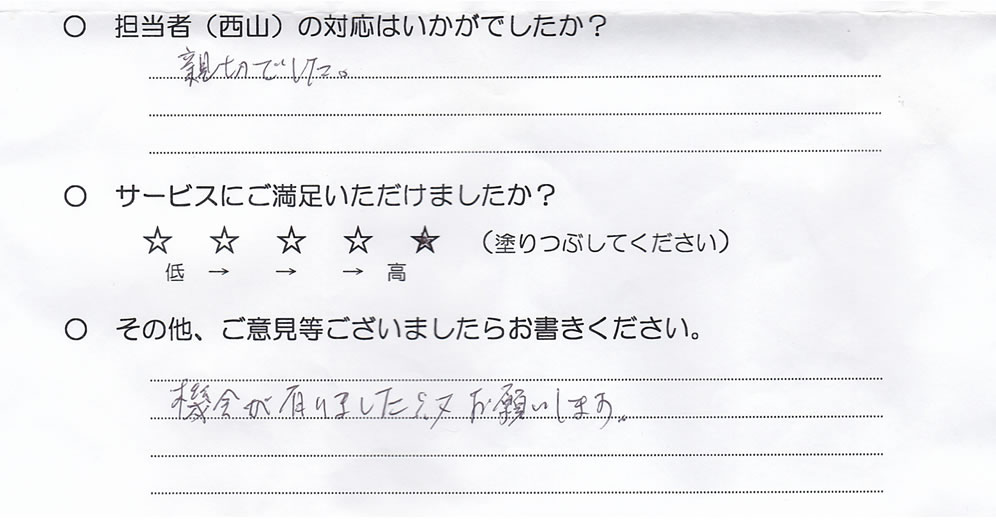 ○ 担当者（西山）の対応はいかがでしたか？
親切でした。
○ サービスにご満足いただけましたか？
☆ ☆ ☆ ☆ ★ （塗りつぶしてください）
低 → → → 高
○ その他、ご意見等ございましたらお書きください。
機会が有りましたら又お願いします。